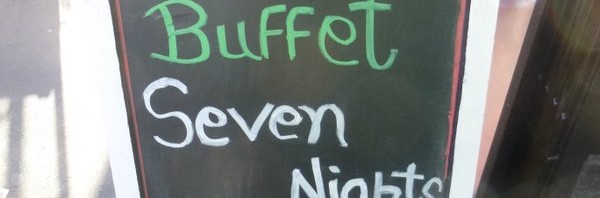 Buffet
Seven
Nights